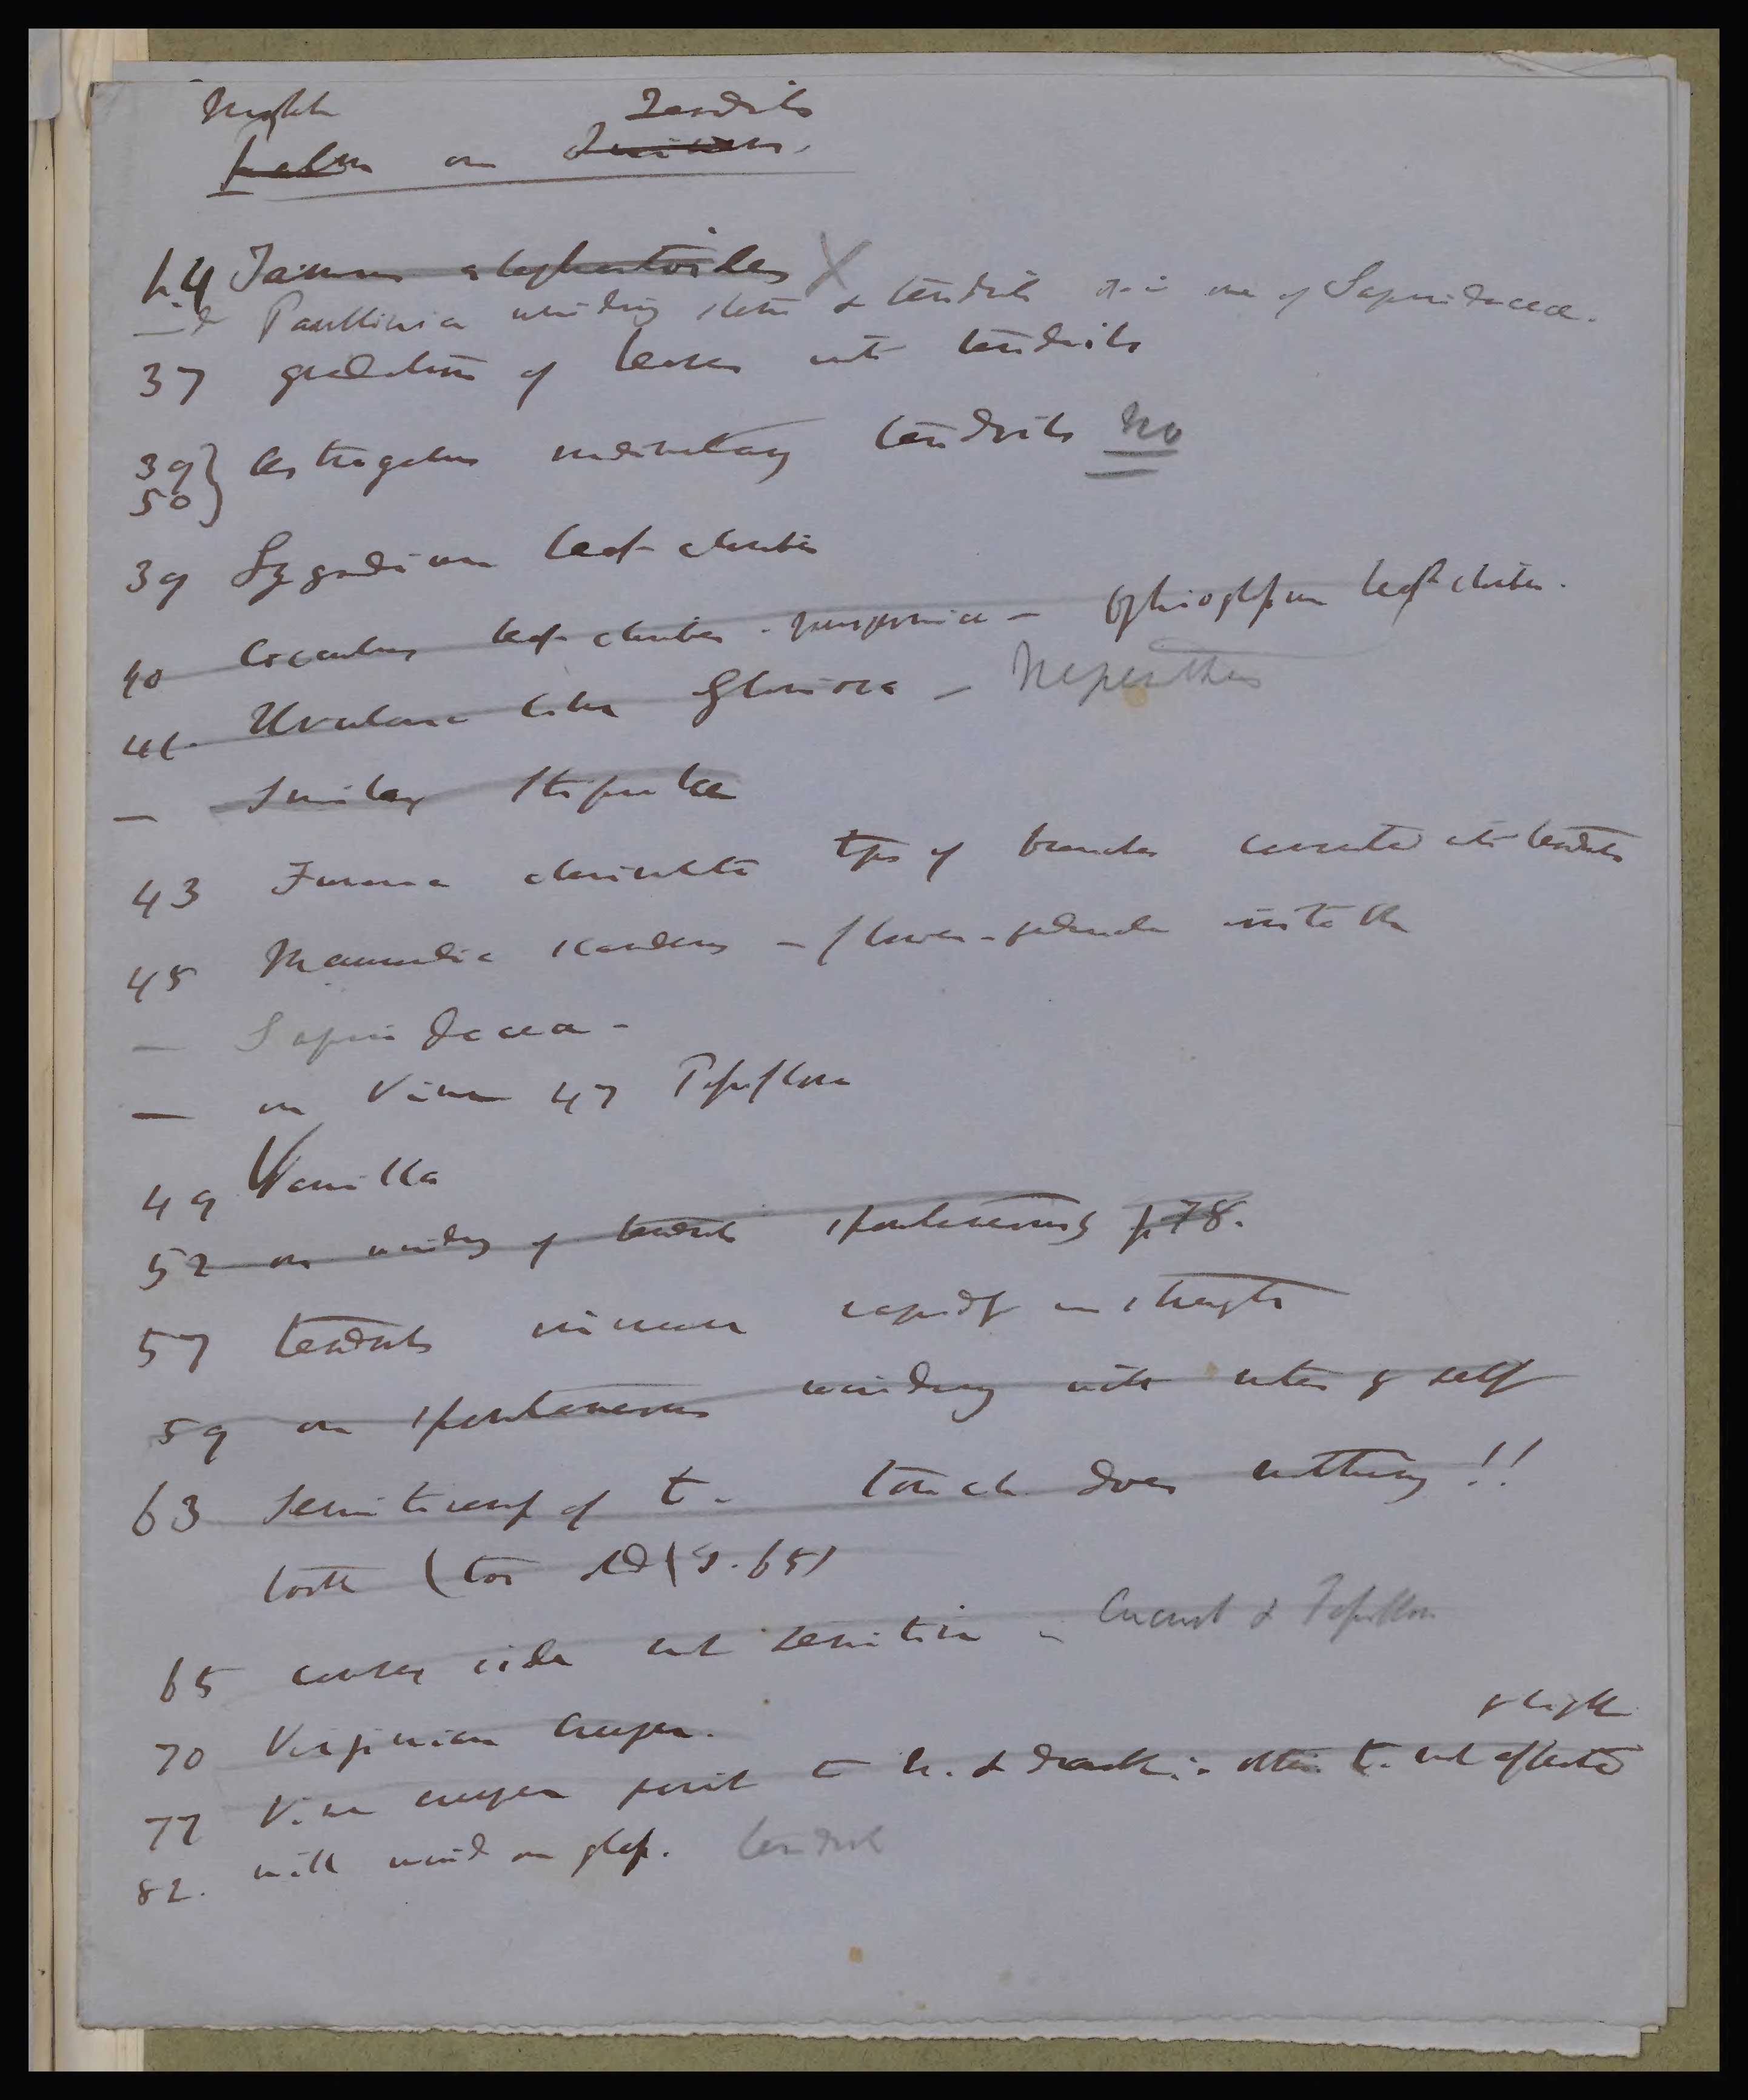 Mohl Tendrils
Palm on Twiners.
p. 4 Tamus elephantoides X
— Paullinia winding stem & tendrils in one of Sapindaceae.
37 gradation of leaves into tendrils
39} Astragalus rudimentary tendrils No
50}
39 Lygodium leaf climber
40 Cocculus leaf climber - Ophioglossum leaf climber.
41. Uvularia like Gloriosa — Nepenthes
— Smilax Stipulae
43 Fumaria claviculata tips of branches converted into tendrils
45 Maurandia scandens — flower-peduncle irritable
— Sapindaceae -
— on Vine 47 Passiflora
49 Vanilla
52 on winding of tendrils spontaneously p 78.
57 tendrils increase rapidly in strength
59 on spontaneous winding without of self
63 Sensitiveness of t. touch does nothing!!
(P. 65)
65 convex side not sensitive — Cucurb & Passiflora
70 Virginian Creeper.
& light
77 Vine creeper point to & dark; other t. not affected
82. will wind on glass. tendrils